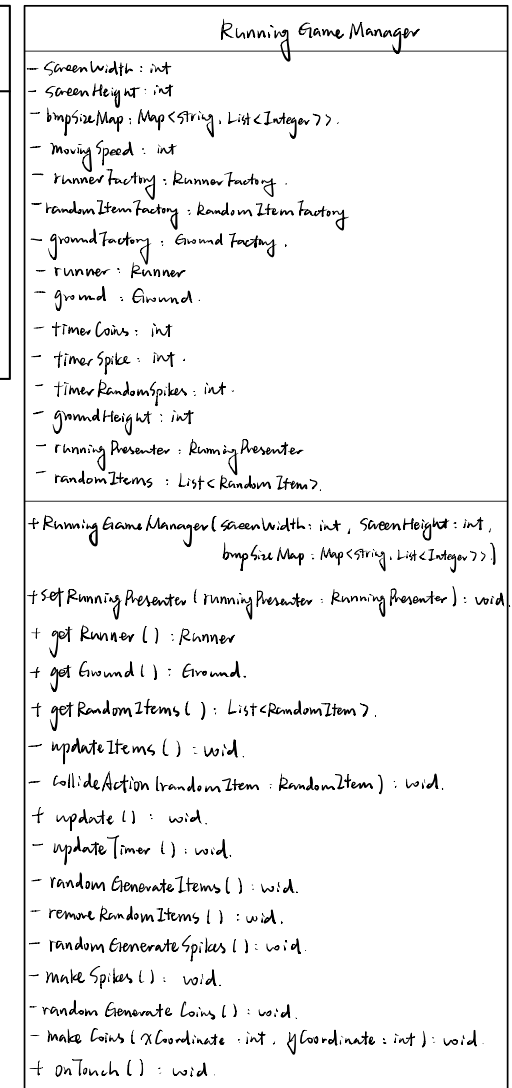 Running Game Manager
- screenWidth : int
- screenHeight : int
- bmpSizeMap : Map<String, List<Integer>>.
- movingSpeed : int
- runnerFactory : RunnerFactory.
- randomItemFactory : RandomItemFactory
- groundFactory : GroundFactory.
- runner : Runner
- ground : Ground.
- timerCoins : int
- timerSpike : int.
- timerRandomSpikes : int.
- groundHeight : int
- runningPresenter : RunningPresenter
- randomItems : List<RandomItem>.
+ RunningGameManager(screenWidth : int, screenHeight : int,
bmpSizeMap : Map<String, List<Integer>>.)
+ setRunningPresenter (runningPresenter : RunningPresenter) : void.
+ getRunner() : Runner
+ getGround() : Ground.
+ getRandomItems() : List<RandomItem>.
- updateItems() : void.
- collideAction (randomItem : RandomItem) : void.
+ update() : void.
- updateTimer() : void.
- randomGenerateItems() : void.
- removeRandomItems() : void.
- randomGenerateSpikes() : void.
- makeSpikes() : void.
- randomGenerateCoins() : void.
- makeCoins (xCoordinate : int, yCoordinate : int) : void.
+ onTouch() : void.